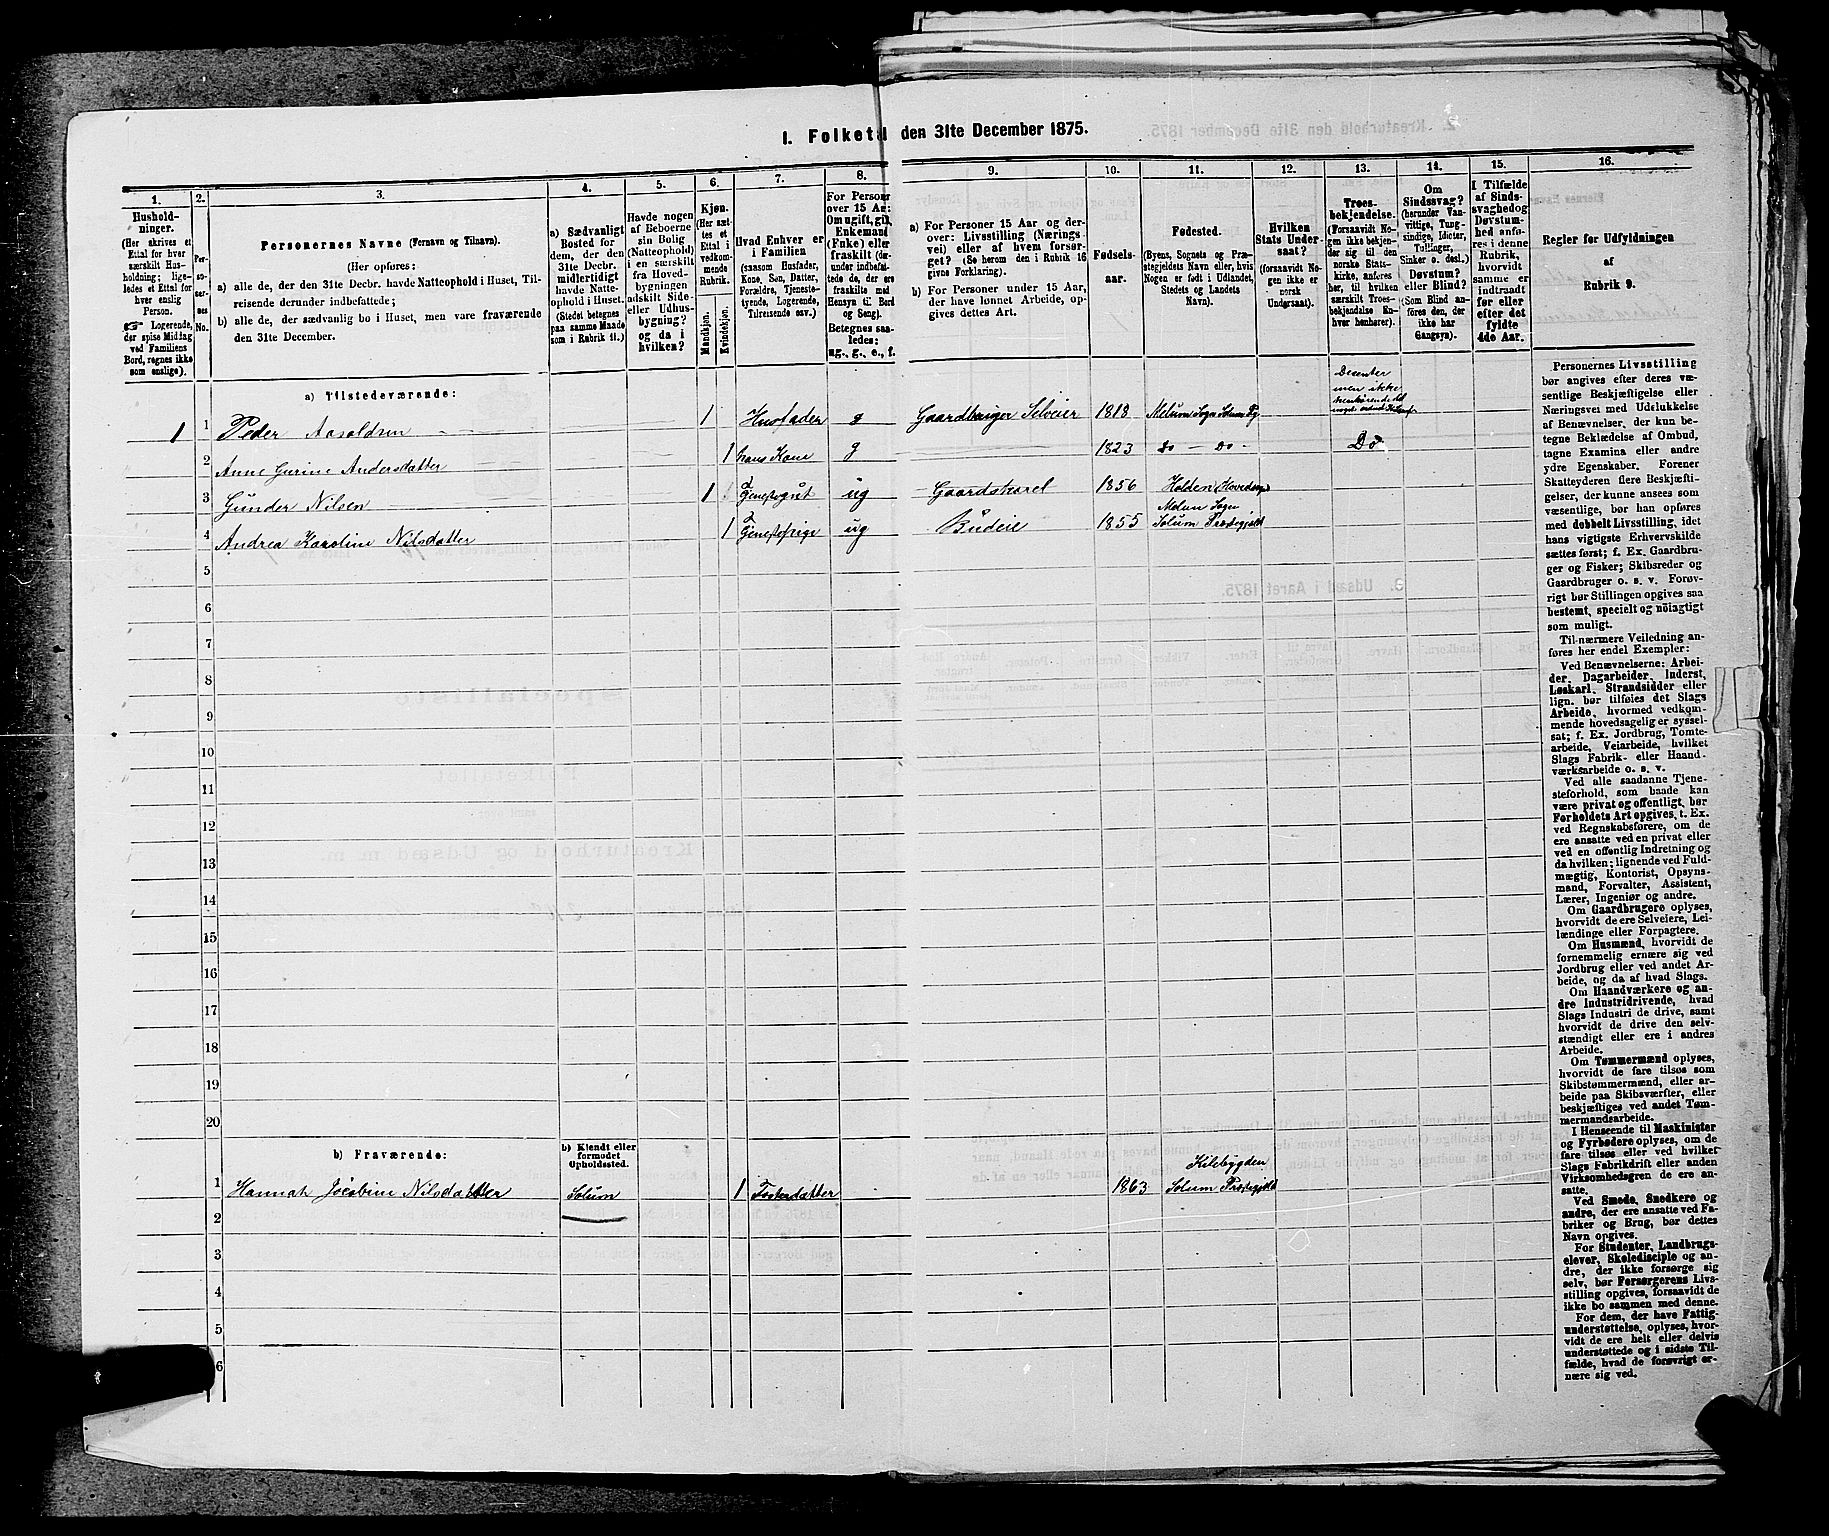 1. Folketal den 31te December 1875.
1.
Hushold-
ninger.
(Her skrives et
Ettal for hver
særskilt Hus-
holdning; lige-
ledes et Ettal for
hver enslig
Person.
☞ Logerende,
der spise Middag
ved Familiens
Bord, regnes ikke
som enslige).
2.
Per-
so-
ner-
nes
No.
3.
Personernes Navne (Fornavn og Tilnavn).
(Her opføres:
a) alle de, der den 31te Decbr. havde Natteophold i Huset, Til-
reisende derunder indbefattede;
b) alle de, der sædvanlig bo i Huset, men vare fraværende
den 31te December.
4.
a) Sædvanligt
Bosted for
dem, der den
31te Decbr.
midlertidigt
havde Natte-
ophold i Huset.
(Stedet betegnes
paa samme Maade
som i Rubrik 11.)
5.
Havde nogen
af Beboerne
sin Bolig
(Natteophold)
i en særskilt
fra Hoved-
bygningen
adskilt Side-
eller Udhus-
bygning?
og da i
hvilken?
6.
Kjøn.
(Her sæt-
tes et
Ettal i
vedkom-
mende
Rubrik.
Mandkjøn.
Kvindekjøn.
7.
Hvad Enhver er
i Familien
(saasom Husfader,
Kone, Søn, Datter,
Forældre, Tjeneste-
tyende, Logerende,
Tilreisende osv.)
8.
For Personer
over 15 Aar:
Om ugift, gift,
Enkemand
(Enke) eller
fraskilt (der-
under indbefat-
tede de, der ere
fraskilte med
Hensyn til Bord
og Seng).
Betegnes saa-
ledes:
ug., g., e., f.
9.
a) For Personer 15 Aar og der-
over: Livsstilling (Nærings-
vei) eller af hvem forsør-
get? (Se herom den i Rubrik 16
givne Forklaring).
b) For Personer under 15 Aar,
der have lønnet Arbeide, op-
gives dettes Art.
10.
Fødsels-
aar.
11.
Fødested.
(Byens, Sognets og Præ-
stegjeldets Navn eller, hvis
Nogen er født i Udlandet,
Stedets og Landets
Navn).
12.
Hvilken
Stats Under-
saat?
(forsaavidt No-
gen ikke er
norsk
Undersaat).
13.
Troes-
bekjendelse.
(Forsaavidt No-
gen ikke bekjen-
der sig til den
norske Stats-
kirke, anføres
her, til hvilken
særskilt Troes-
bekjendelse En-
hver henhører).
14.
Om
Sindssvag?
(herunder Van-
vittige, Tung-
sindige, Idioter,
Tullinger,
Sinker o. desl.)
Døvstum?
eller Blind?
(Som Blind an-
føres den, der
ikke har
Gangsyn).
15.
I Tilfælde
af Sinds-
svaghed og
Døvstum-
hed anfø-
res i denne
Rubrik,
hvorvidt
samme er
indtraadt
før eller
efter det
fyldte
4de Aar.
16.
Regler for Udfyldningen
af
Rubrik 9.
a) Tilstedeværende:
1 1 Peder Aasoldsen 1 Husfader g Gaardbruger Selveier 1818 Melum Sogn Solum Pg Desenter men ikke
2 Anne Gurine Andersdatter 1 hans Kone g 1823 do — Do — Do
3 Gunder Nilsen 1 Tjenestegut ug Gaardskarl 1856 Holden Hovedsogn
4 Andrea Karoline Nilsdatter 1 Tjenestepige ug Budeie 1855 Melum Sogn Solum Præstegjeld
5
6
7
8
9
10
11
12
13
14
15
16
17
18
19
20
b) Fraværende:
b) Kjendt eller
formodet
Opholdssted.
1 Hannah Jocobine Nilsdatter Solum 1 Fosterdatter 1863 Kilebygden Solum Præstegjeld
2
3
4
5
6
Personernes Livsstilling
bør angives efter deres væ-
sentlige Beskjæftigelse eller
Næringsvei med Udelukkelse
af Benævnelser, der kun be-
tegne Beklædelse af Ombud,
tagne Examina eller andre
ydre Egenskaber. Forener
Skatteyderen flere Beskjæfti-
gelser, der kunne ansees som
væsentlige, bør han opføres
med dobbelt Livsstilling, idet
hans vigtigste Erhvervskilde
sættes først; f. Ex. Gaardbru-
ger og Fisker; Skibsreder og
Gaardbruger o. s. v. Forøv-
rigt bør Stillingen opgives saa
bestemt, specielt og nöiagtigt
som muligt.
Til nærmere Veiledning an-
føres her endel Exempler:
Ved Benævnelserne: Arbei-
der, Dagarbeider, Inderst,
Løskarl, Strandsidder eller
lign. bør tilføies det Slags
Arbeide, hvormed vedkom-
mende hovedsagelig er syssel-
sat; f. Ex. Jordbrug, Tomte-
arbeide, Veiarbeide, hvilket
Slags Fabrik- eller Haand-
værksarbeide o. s. v.
Ved alle saadanne Tjene-
steforhold, som baade kan
være privat og offentligt, bør
Forholdets Art opgives, t. Ex.
ved Regnskabsførere, om de
ere ansatte ved en privat eller
ved en offentlig Indretning og
da hvilken; lignende ved Fuld-
mægtig, Kontorist, Opsyns-
mand, Forvalter, Assistent,
Lærer, Ingeniør og andre.
Om Gaardbrugere oplyses,
hvorvidt de ere Selveiere, Lei-
lændinge eller Forpagtere.
Om Husmænd, hvorvidt de
fornemmelig ernære sig ved
Jordbrug eller ved andet Ar-
beide, og da af hvad Slags.
Om Haandværkere og an-
dre Industridrivende, hvad
Slags Industri de drive, samt
hvorvidt de drive den selv-
stændigt eller ere i andres
Arbeide.
Om Tømmermænd oplyses,
hvorvidt de fare tilsøs som
Skibstømmermænd, eller ar-
beide paa Skibsværfter, eller
beskjæftiges ved andet Tøm-
mermandsarbeide.
I Henseende til Maskinister
og Fyrbødere oplyses, om de
fare tilsøs eller ved hvilket
Slags Fabrikdrift eller anden
Virksomhedsgren de ere an-
satte.
Ved Smede, Snedkere og
andre, der ere ansatte ved Fa-
briker og Brug, bør dettes
Navn opgives.
For Studenter, Landbrugs-
elever, Skoledisciple og an-
dre, der ikke forsørge sig
selv, bør Forsørgerens Livs-
stilling opgives, forsaavidt de
ikke bo sammen med denne.
For dem, der have Fattig-
understøttelse, oplyses, hvor-
vidt de ere helt eller delvis
understøttede og i sidste Til-
fælde, hvad de forøvrigt er-
nære sig ved.